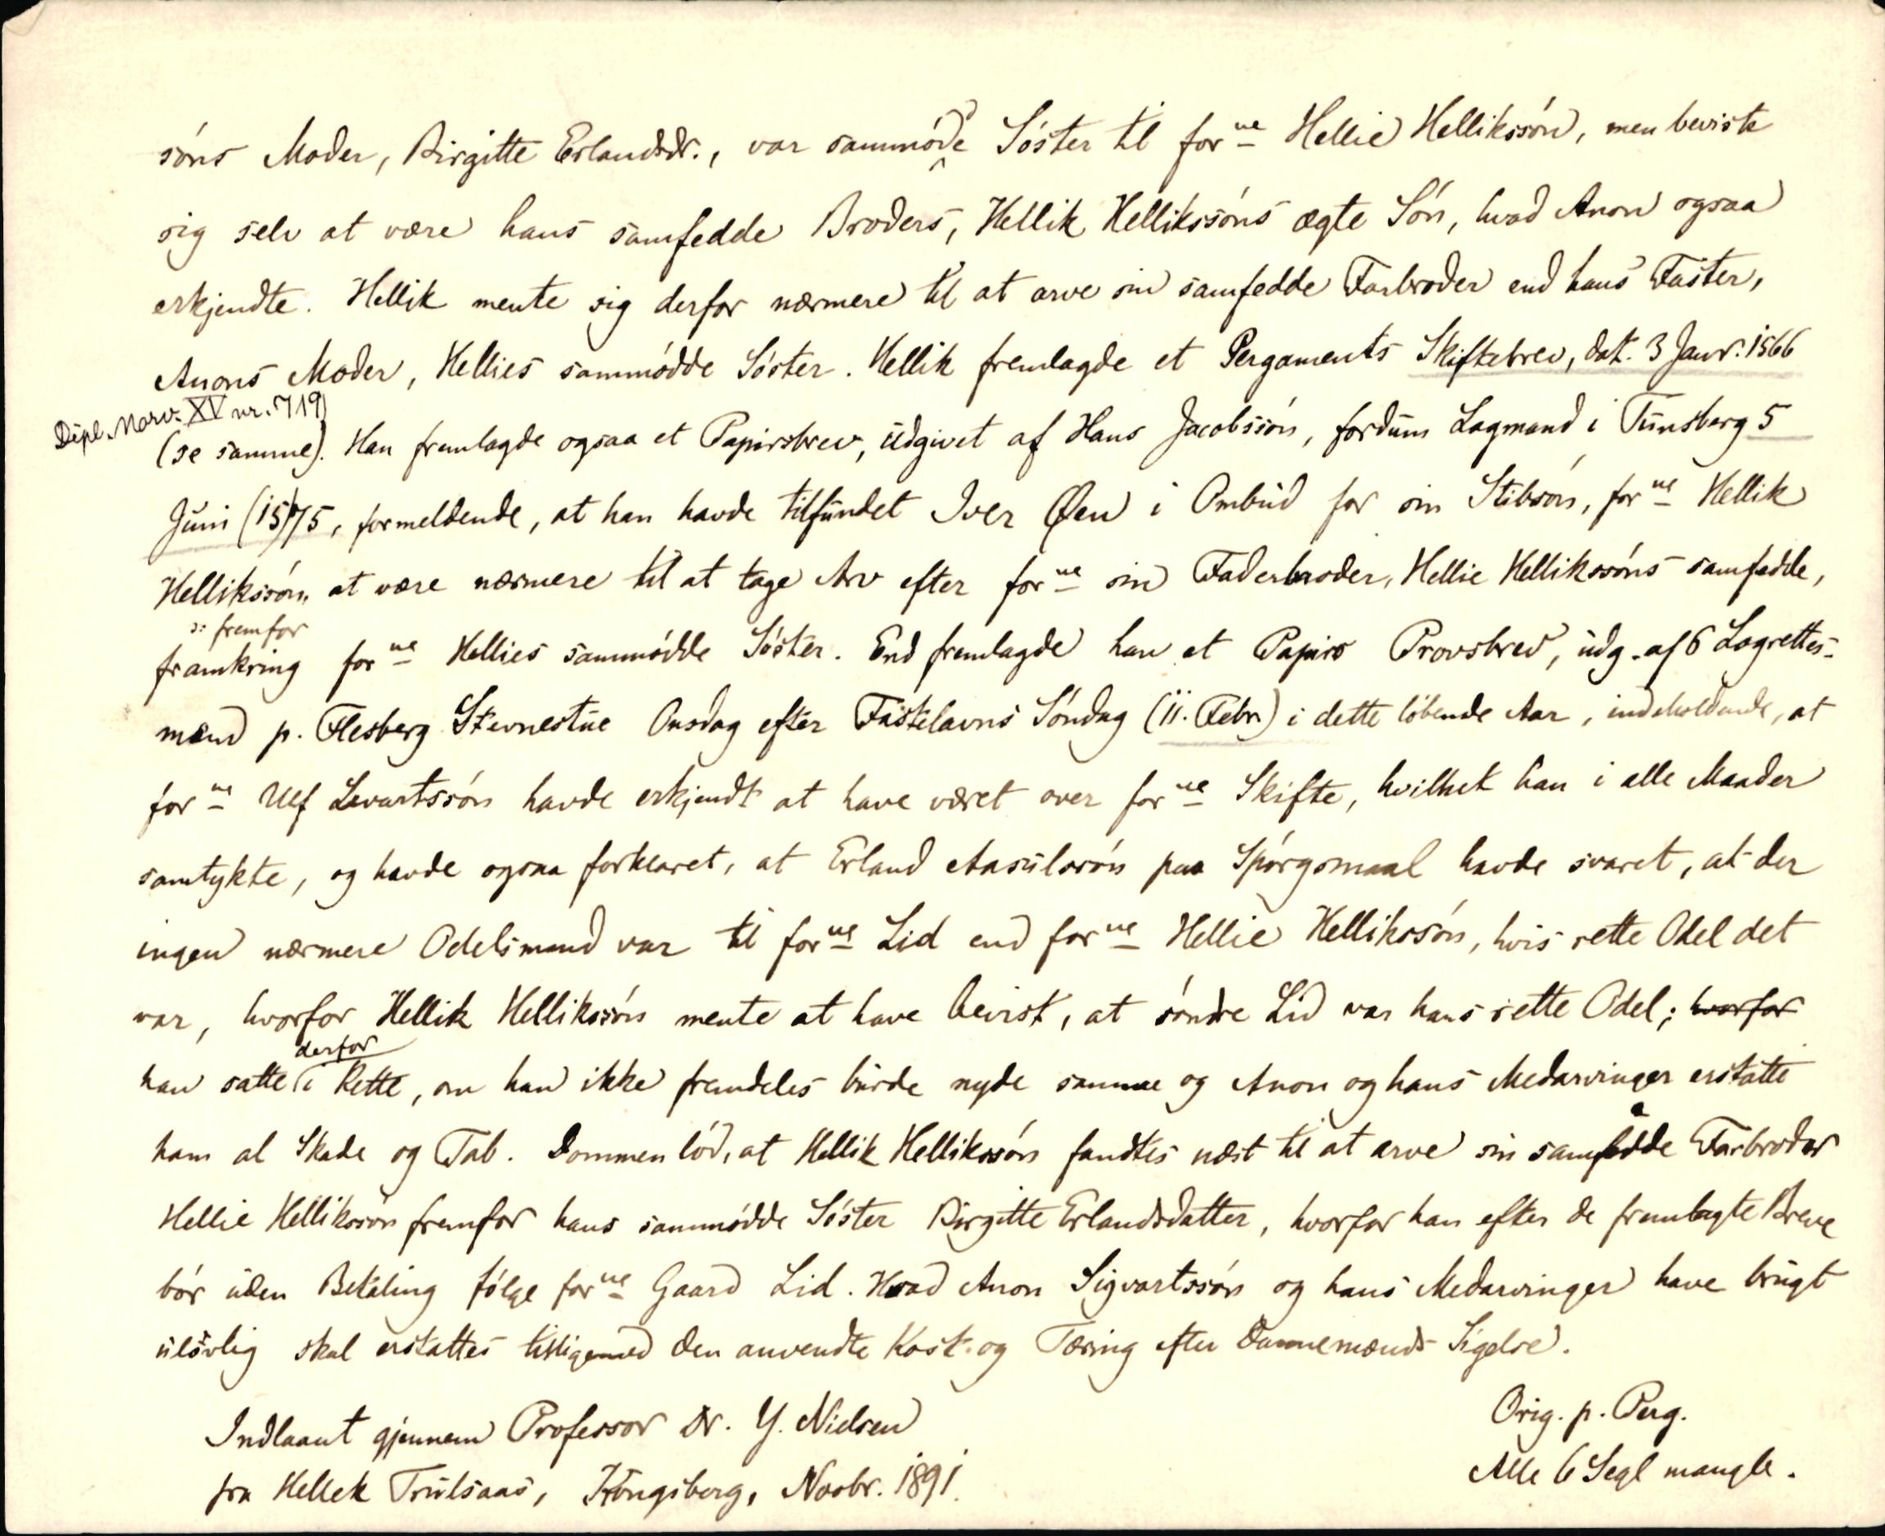 sóns Moder, Birgitte Erlandsdr., var sammódde Sóster til for<sup>ne</sup> Hellie Helliksśon, men beviste
sig selv at være hans samfedde Broders, Hellik Hellikssóns ægte Són, hvad Anon ogsaa
erkjendte. Hellik mente sig derfor nærmere til at arve sin samfedde Farbroder end hans Faster,
Anons Moder, Hellies sammódde Sóster. Hellik fremlagde et Pergaments Skiftebrev, dat. 3 Janr. 1566
Dipl. Norv. XV nr. 719
(se samme). Han fremlagde ogsaa et Papirsbrev, udgivet af Hans Jacobssón, fordum Lagmand i Tunsberg 5
Juni (15)75, formeldende, at han havde tilfundet Iver Øen i Ombud for sin Stibsón, for<sup>ne</sup> Hellik
Hellikssón, at være nærmere til at tage Arv efter for<sup>ne</sup> sin Faderbroder, Hellie Hellikssóns samfedde,
ɔ: fremfor
framkring for<sup>ne</sup> Hellies sammódde Sóster. End fremlagde han et Papirs Provsbrev, udg. af 6 Lagrettes-
mænd p. Flesberg Stevnestue Onsdag efter Fastelavns Sóndag (11. Febr.) i dette lóbende Aar, indeholdende, at
for<sup>ne</sup> Ulf Levartssón havde erkjendt at have været over for<sup>ne</sup> Skifte, hvilket han i alle Maader
samtykte, og havde ogsaa forklaret, at Erland Aasulssón paa Spórgsmaal havde svaret, at der
ingen nærmere Odelsmand var til for<sup>ne</sup> Lid end for<sup>ne</sup> Hellie Hellikssón, hvis rette Odel det
var, hvorfor Hellik Hellikssón mente at have bevist, at sóndre Lid var hans rette Odel; hvorfor
derfor
han satte i Rette, om han ikke fremdeles burde nyde samme og Anon og hans Medarvinger erstatte
ham al Skade og Tab. Dommen lód, at Hellik Hellikssón fandtes næst til at arve sin samfædde Farbroder
Hellie Hellikssón fremfor hans sammódde Sóster Birgitte Erlandsdatter, hvorfor han efter de fremlagte Breve
bór uden Betaling fólge for<sup>ne</sup> Gaard Lid. Hvad Anon Sigvartssón og hans Medarvinger have brugt
ulovlig skal erstattes tilligemed den anvendte Kost og Tæring efter Dannemænds Sigelse.
Indlaant gjennem Professor Dr. Y. Nielsen
fra Hellek Trulsaas, Kongsberg, Novbr. 1891.
Orig. p. Perg.
Alle 6 Segl mangle.